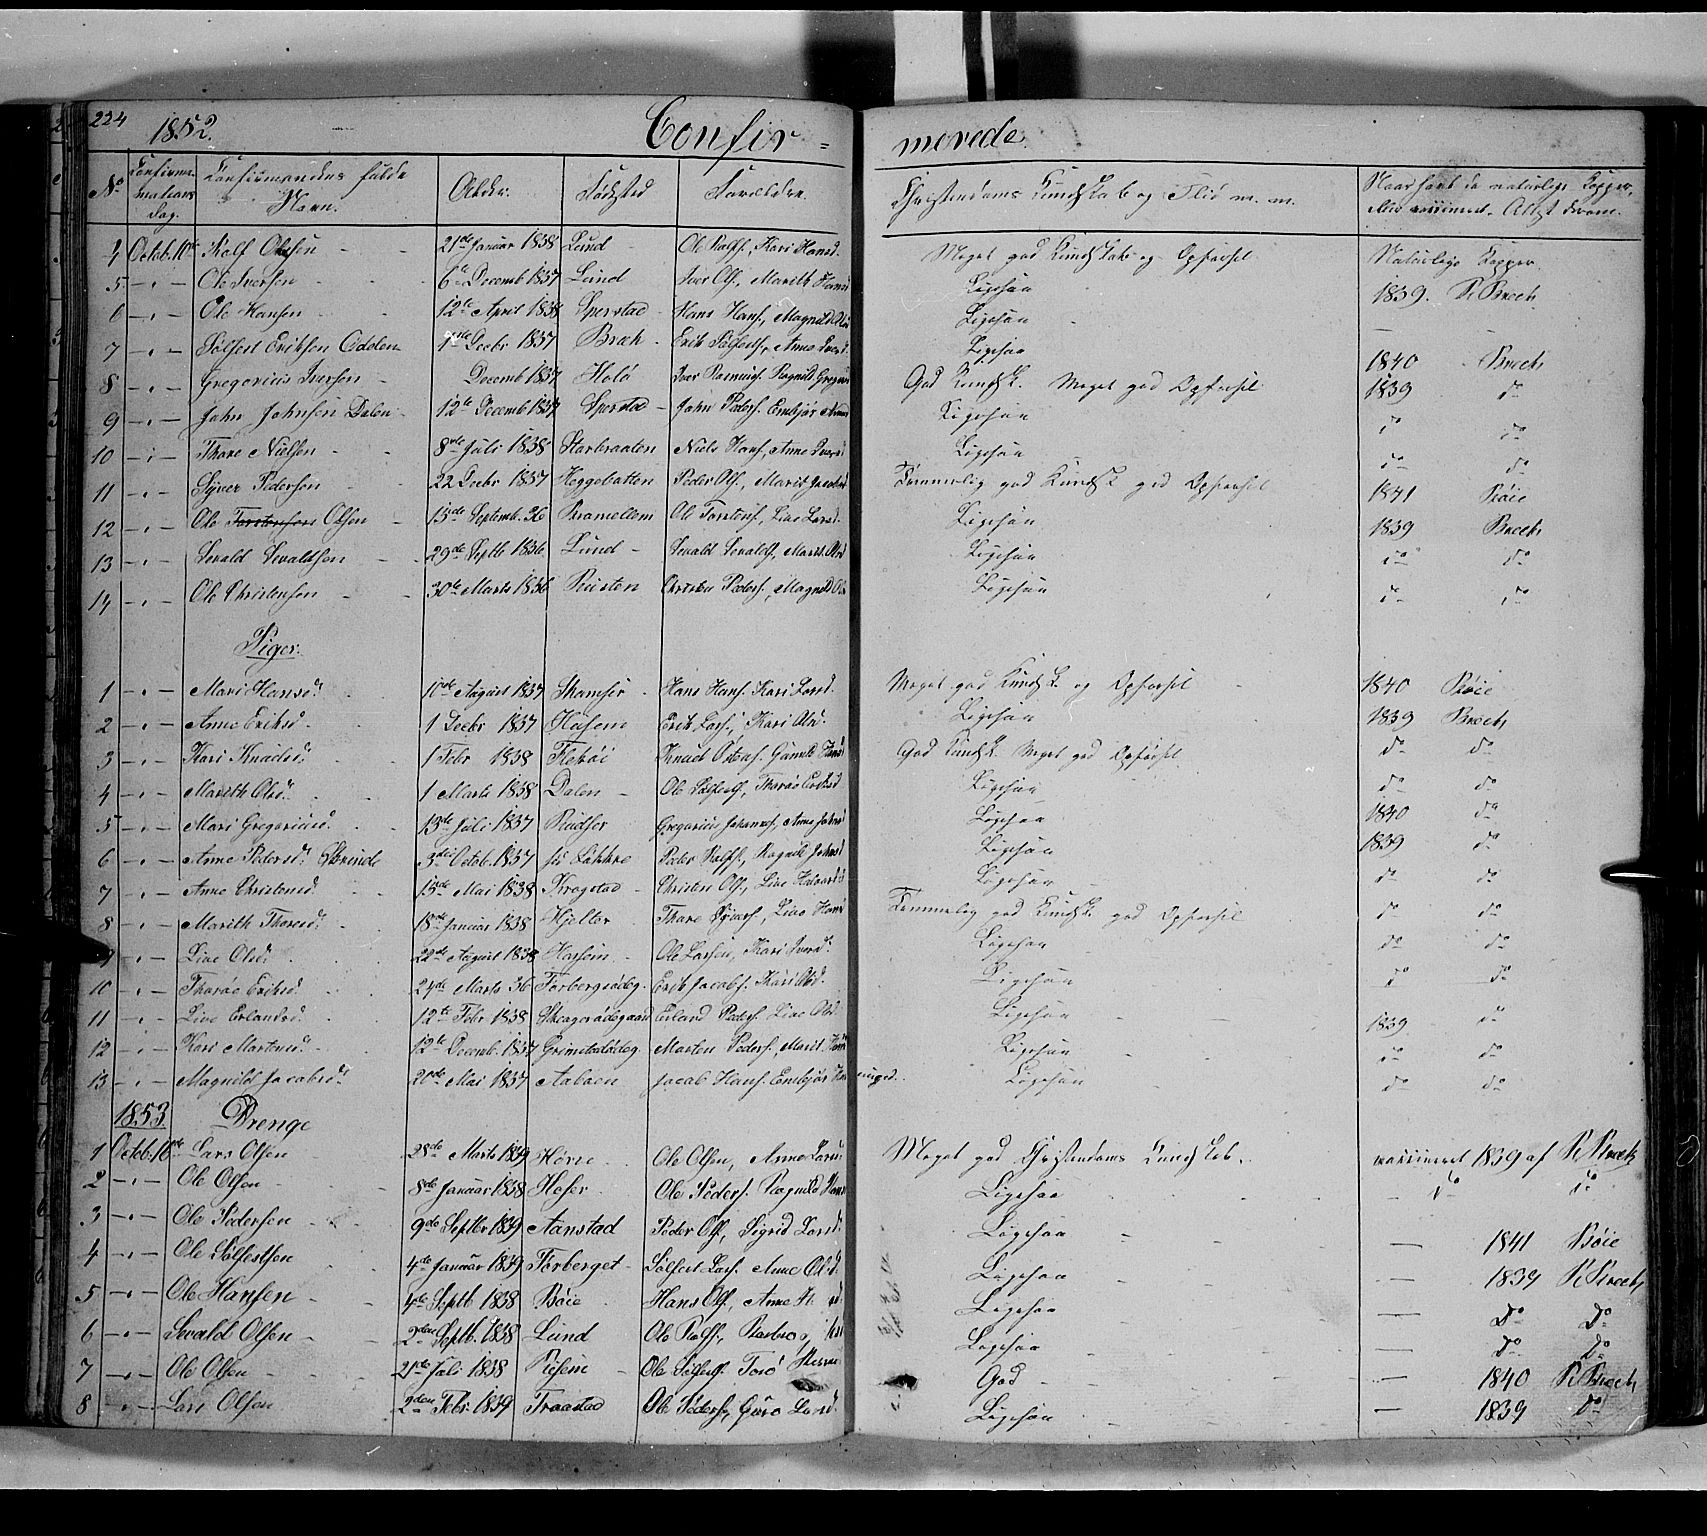 224 1852. Confir= merede
No Confirmations Dag. Confirmandens fulde Navn. Alder. Fødested Forældre. Christendoms Kundskab og Flid m. m. Naar havt de naturlige Kopper, eller vaccineret. Attest derom.
4 Octob. 10de Rolf Olsen 21de Januar 1838 Lund Ole Rolfs., Kari Hansd. Meget god Kundskab og Opførsel Naturlige Kopper
5 Ole Iversen 6te Decemb 1837 Lund Iver Ols., Marith Ligesaa 1839. Broch
6 Ole Hansen 12te April 1838 Sperstad Hans Hans., Magnild Ligesaa —
7 Sølfest Eriksen Odden Decbr 1837 Erik Sølfests., Anne Iversd. Ligesaa 1840 Broch
8 Gregorius Iversen Decemb 1837 Holø Iver Rasmus. Ragnild God Kundsk. Meget god Opførsel 1839 do
9 John Johnsen Dalen 12te Decemb 1837 Sperstad John Peders. Embjør Ligesaa do do
10 Thore Nielsen 8de Juli 1838 Storbraaten Niels Hans., Anne Iversd Ligesaa do do
11 Syver Pedersen 22 Decbr 1837 Heggebotten Peder Ols., Marit Temmelig god Kundsk god Opførsel 1841 Bøie
12 Ole Torstensen Olsen 13de Septemb. 36 Bramellem Ole Torstens., Live Larsd. Ligesaa 1839 Broch
13 Sevald Sevaldsen 29de Septb 1836 Lund Sevald Sevalds., Marit Olsd Ligesaa do do
14 Ole Christensen 30te Marts 1836 Rusten Christen Peders., Magnild Ligesaa do do
Piger.
1 Mari Hansd. 10de August 1837 Skamsør Hans Hans. Kari Larsd. Meget god Kundsk. og Opførsel 1840 Bøie
2 Anne Eriksd. 1 Decbr 1837 Husem Erik Lars., Kari Olsd. Ligesaa 1839 Broch
3 Kari Knudsd. 1 Febr 1838 Fletøi Knud Østens. Gunild God Kundsk. Meget god Opførsel do do
4 Marith Olsd. 1 Marts 1838 Dalen Ole Sølfests., Thorøe Eriksd Ligesaa do do
5 Mari Gregoriusd. 13de Juli 1837 Gregorius Johannes., Anne Johnsd Ligesaa 1840 do
6 Anne Pedersd. Skrinde 3die Octob. 1837 Løkkre Peder Rolfs., Ragnild Johnsd Ligesaa 1839 do
7 Anne Christensd. 15de Mai 1838 Krogstad Christen Ols., Live Halvorsd Ligesaa do do
8 Marith Thoresd. 18de Januar 1838 Hjelter Thore Syvers., Live Temmelig god Kundsk. god Opførsel do do
9 Live Olsd. 22de August 1838 Hassem Ole Larsen, Kari Iversd. Ligesaa do do
10 Thorøe Eriksd. 24de Marts 36 Torbergsødeg. Erik Jacobs. Kari Olsd. Ligesaa do do
11 Live Erlandsd. 12te Febr 1838 Skogsødegaard Erland Peders. Live Olsd Ligesaa 1839 do
12 Kari Mortensd. 12te Decemb. 1837 Grimstadødeg. Morten Peders., Marit Ligesaa do do
13 Magnild Jacobsd. 20de Mai 1837 Aaboen Jacob Hans. Embjør Ligesaa do do
1853 Drenge
1 Octob. 16de Lars Olsen 28de Marts 1839 Horre Ole Olsen, Anne Meget god Christendoms Kundskab. vaccineret 1839 af R Broch
2 Ole Olsen 8de Januar 1838 Ole Peders. Ragnild Ligesaa do do
3 Ole Pedersen 9de Septbr 1839 Aanstad Peder Ols., Sigrid Larsd. Ligesaa — 1841 Bøie
4 Ole Sølfestsen 4de Januar 1839 Torberget Sølfest Lars. Anne Olsd Ligesaa — 1839 R Broch
5 Ole Hansen 4de Septb 1838 Bøie Hans Ols., Anne Ligesaa — Do Do
6 Sevald Olsen 2den Septb. 1838 Lund Ole Rolfs., Ligesaa — Do Do
7 Ole Olsen 21de Juli 1838 Ole Sølfests. Torø God — 1840 R Broch
8 Lars Olsen 2den Febr. 1839 Traastad Ole Peders., Guro Larsd Ligesaa — 1839 Do